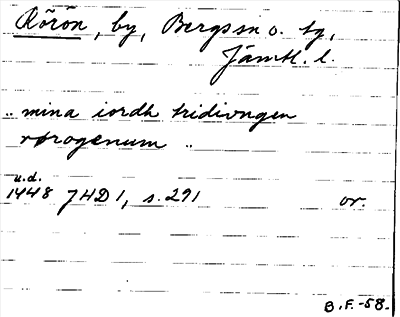 Rörön, by, Bergs sn o. tg,
Jämtl. l.
„ mina iordh tridiongen
rørogenum „
u.d.
1448 JHD 1, s. 291 or.
B.F. -58.